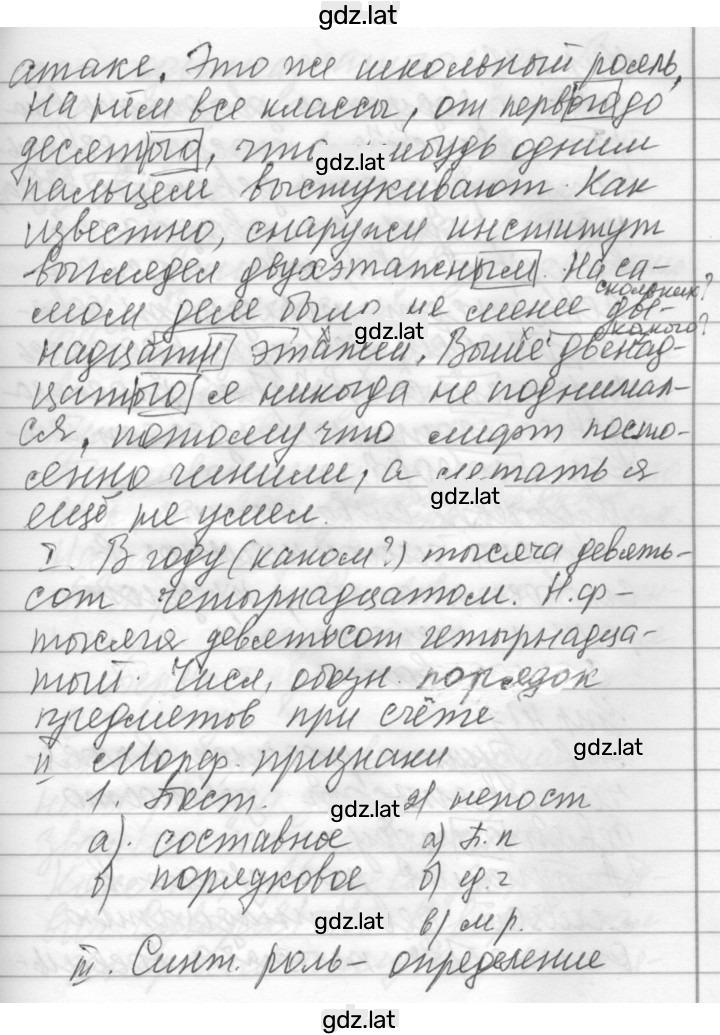 gdz.lat
атаке. Это же школьный рояль,
на нём все классы, от первого до
десятого, что нибудь одним
gdz.lat
пальцем выстукивают. Как
известно, снаружи институт
выглядел двухэтажным. На са-
скольких?
мом деле было не менее две-
какого?
gdz.lat
надцати этажей. Выше двенад-
цатого я никогда не поднимал-
ся, потому что лифт посто-
янно чинили, а летать я
gdz.lat
ещё не умел.
I. В году (каком?) тысяча девять-
сот четырнадцатом. Н.ф-
тысяча девятьсот четырнадца-
тый. Числ, обозн. порядок
предметов при счёте
gdz.lat
II Морф. признаки
1. Пост. 2) непост
gdz.lat
а). составное а) П. п
б) порядковое б) ед. ч
gdz.lat
в) м р.
III. Синт. роль - определение
gdz.lat